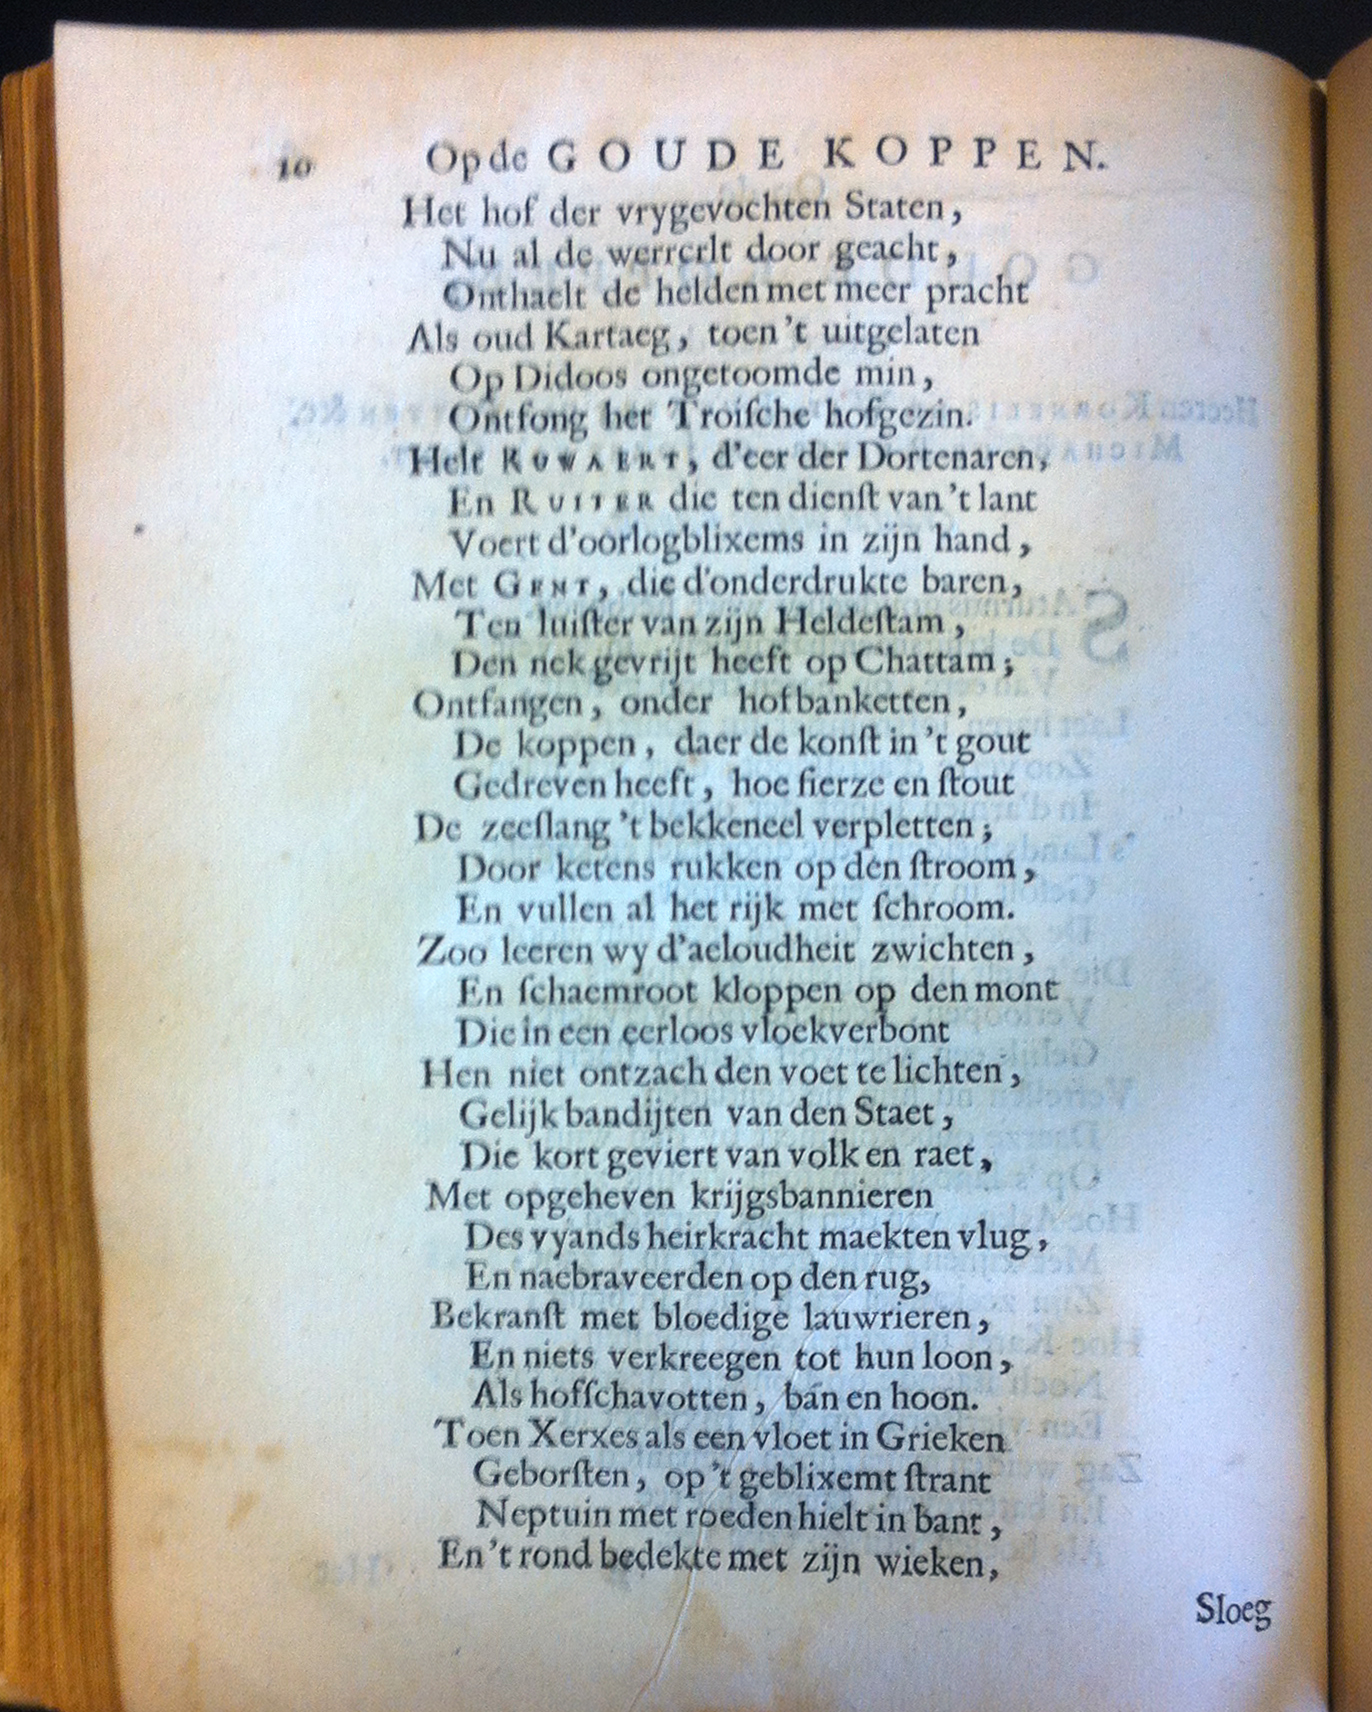 10 Op de GOUDE KOPPEN.
Het hof der vrygevochten Staten,
Nu al de werrerlt door geacht,
Onthaelt de helden met meer pracht
Als oud Kartaeg, toen 't uitgelaten
Op Didoos ongetoomde min,
Ontfong het Troiſche hofgezin.
Helt RUWAERT, d'eer der Dortenaren,
En RUITER die ten dienſt van 't lant
Voert d'oorlogblixems in zijn hand,
Met GENT, die d'onderdrukte baren,
Ten luiſter van zijn Heldeſtam,
Den nek gevrijt heeft op Chattam;
Ontfangen, onder hofbanketten,
De koppen, daer de konſt in 't gout
Gedreven heeft, hoe fierze en ſtout
De zeeſlang 't bekkeneel verpletten;
Door ketens rukken op den ſtroom,
En vullen al het rijk met ſchroom.
Zoo leeren wy d'aeloudheit zwichten,
En ſchaemroot kloppen op den mont
Die in een eerloos vloekverbont
Hen niet ontzach den voet te lichten,
Gelijk bandijten van den Staet,
Die kort geviert van volk en raet,
Met opgeheven krijgsbannieren
Des vyands heirkracht maekten vlug,
En naebraveerden op den rug,
Bekranſt met bloedige lauwrieren,
En niets verkreegen tot hun loon,
Als hofſchavotten, ban en hoon.
Toen Xerxes als een vloet in Grieken
Geborſten, op 't geblixemt ſtrant
Neptuin met roeden hielt in bant,
En 't rond bedekte met zijn wieken,
Sloeg